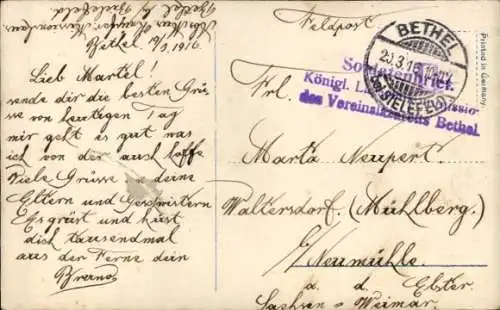 Bethel 19/3. 1916.
Lieb Martel!
sende dir die besten Grü=
sse von heutigen Tag
mir geht es gut was
ich von der auch hoffe
Viele Grüsse a deine
Eltern und Geschwistern
Es grüst und küst
dich tausendmal
aus der Ferne dein
Feldpost
BETHEL
Soldatenbrief.
Königl.
des Vereinslazaretts Bethel.
Printed in Germany
Frl.
Marta Neupert.
Waltersdorf. (Mühlberg.)
b/ Neumühle.
a. d. Elster
Sachsen = Weimar.